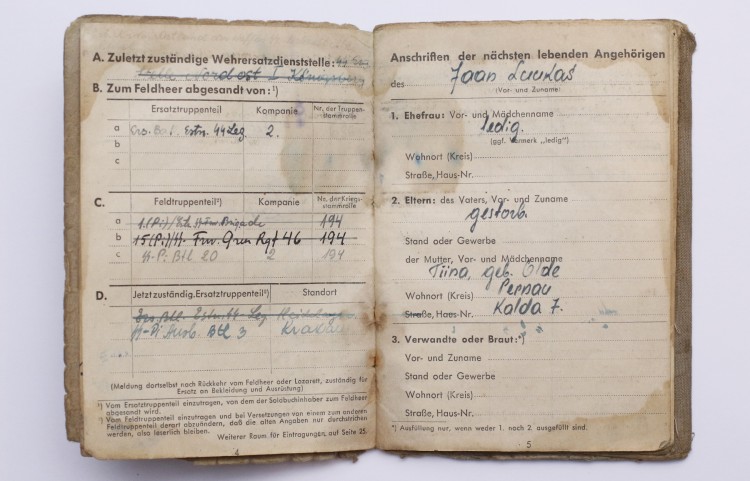 A. Zuletzt zuständige Wehrersatzdienststelle:
Nordost I Königsberg
B. Zum Feldheer abgesandt von: ¹)
Ersatztruppenteil Kompanie Nr. der Truppen-
stammrolle
a Estn. ᛋᛋ Leg 2.
b
c
C. Feldtruppenteil²) Kompanie Nr. der Kriegs-
stammrolle
a 1.(Pi)/ Brigade 194
b 15(Pi)/ᛋᛋ- Frw. Gren Rgt 46 194
c ᛋᛋ-Pi. Btl 20 2 194
D. Jetzt zuständig. Ersatztruppenteil²) Standort
Ers. Btl. Estn. ᛋᛋ-Leg
ᛋᛋ-Pi Ausb. Btl 3 Krakau
(Meldung dortselbst nach Rückkehr vom Feldheer oder Lazarett, zuständig für
Ersatz an Bekleidung und Ausrüstung)
¹) Vom Ersatztruppenteil einzutragen, von dem der Soldbuchinhaber zum Feldheer
abgesandt wird.
²) Vom Feldtruppenteil einzutragen und bei Versetzungen von einem zum anderen
Feldtruppenteil derart abzuändern, daß die alten Angaben nur durchstrichen
werden, also leserlich bleiben.
Weiterer Raum für Eintragungen, auf Seite 25.
4
Anschriften der nächsten lebenden Angehörigen
des Jaan Luukas
(Vor- und Zuname)
1. Ehefrau: Vor- und Mädchenname
ledig.
(ggf. Vermerk „ledig")
Wohnort (Kreis)
Straße, Haus-Nr.
2. Eltern: des Vaters, Vor- und Zuname
gestorb.
Stand oder Gewerbe
der Mutter, Vor- und Mädchenname
Tiina, geb. Olde
Wohnort (Kreis) Pernau
Straße, Haus-Nr. Kalda 7.
3. Verwandte oder Braut:*)
Vor- und Zuname
Stand oder Gewerbe
Wohnort (Kreis)
Straße, Haus-Nr.
*) Ausfüllung nur, wenn weder 1. noch 2. ausgefüllt sind.
5